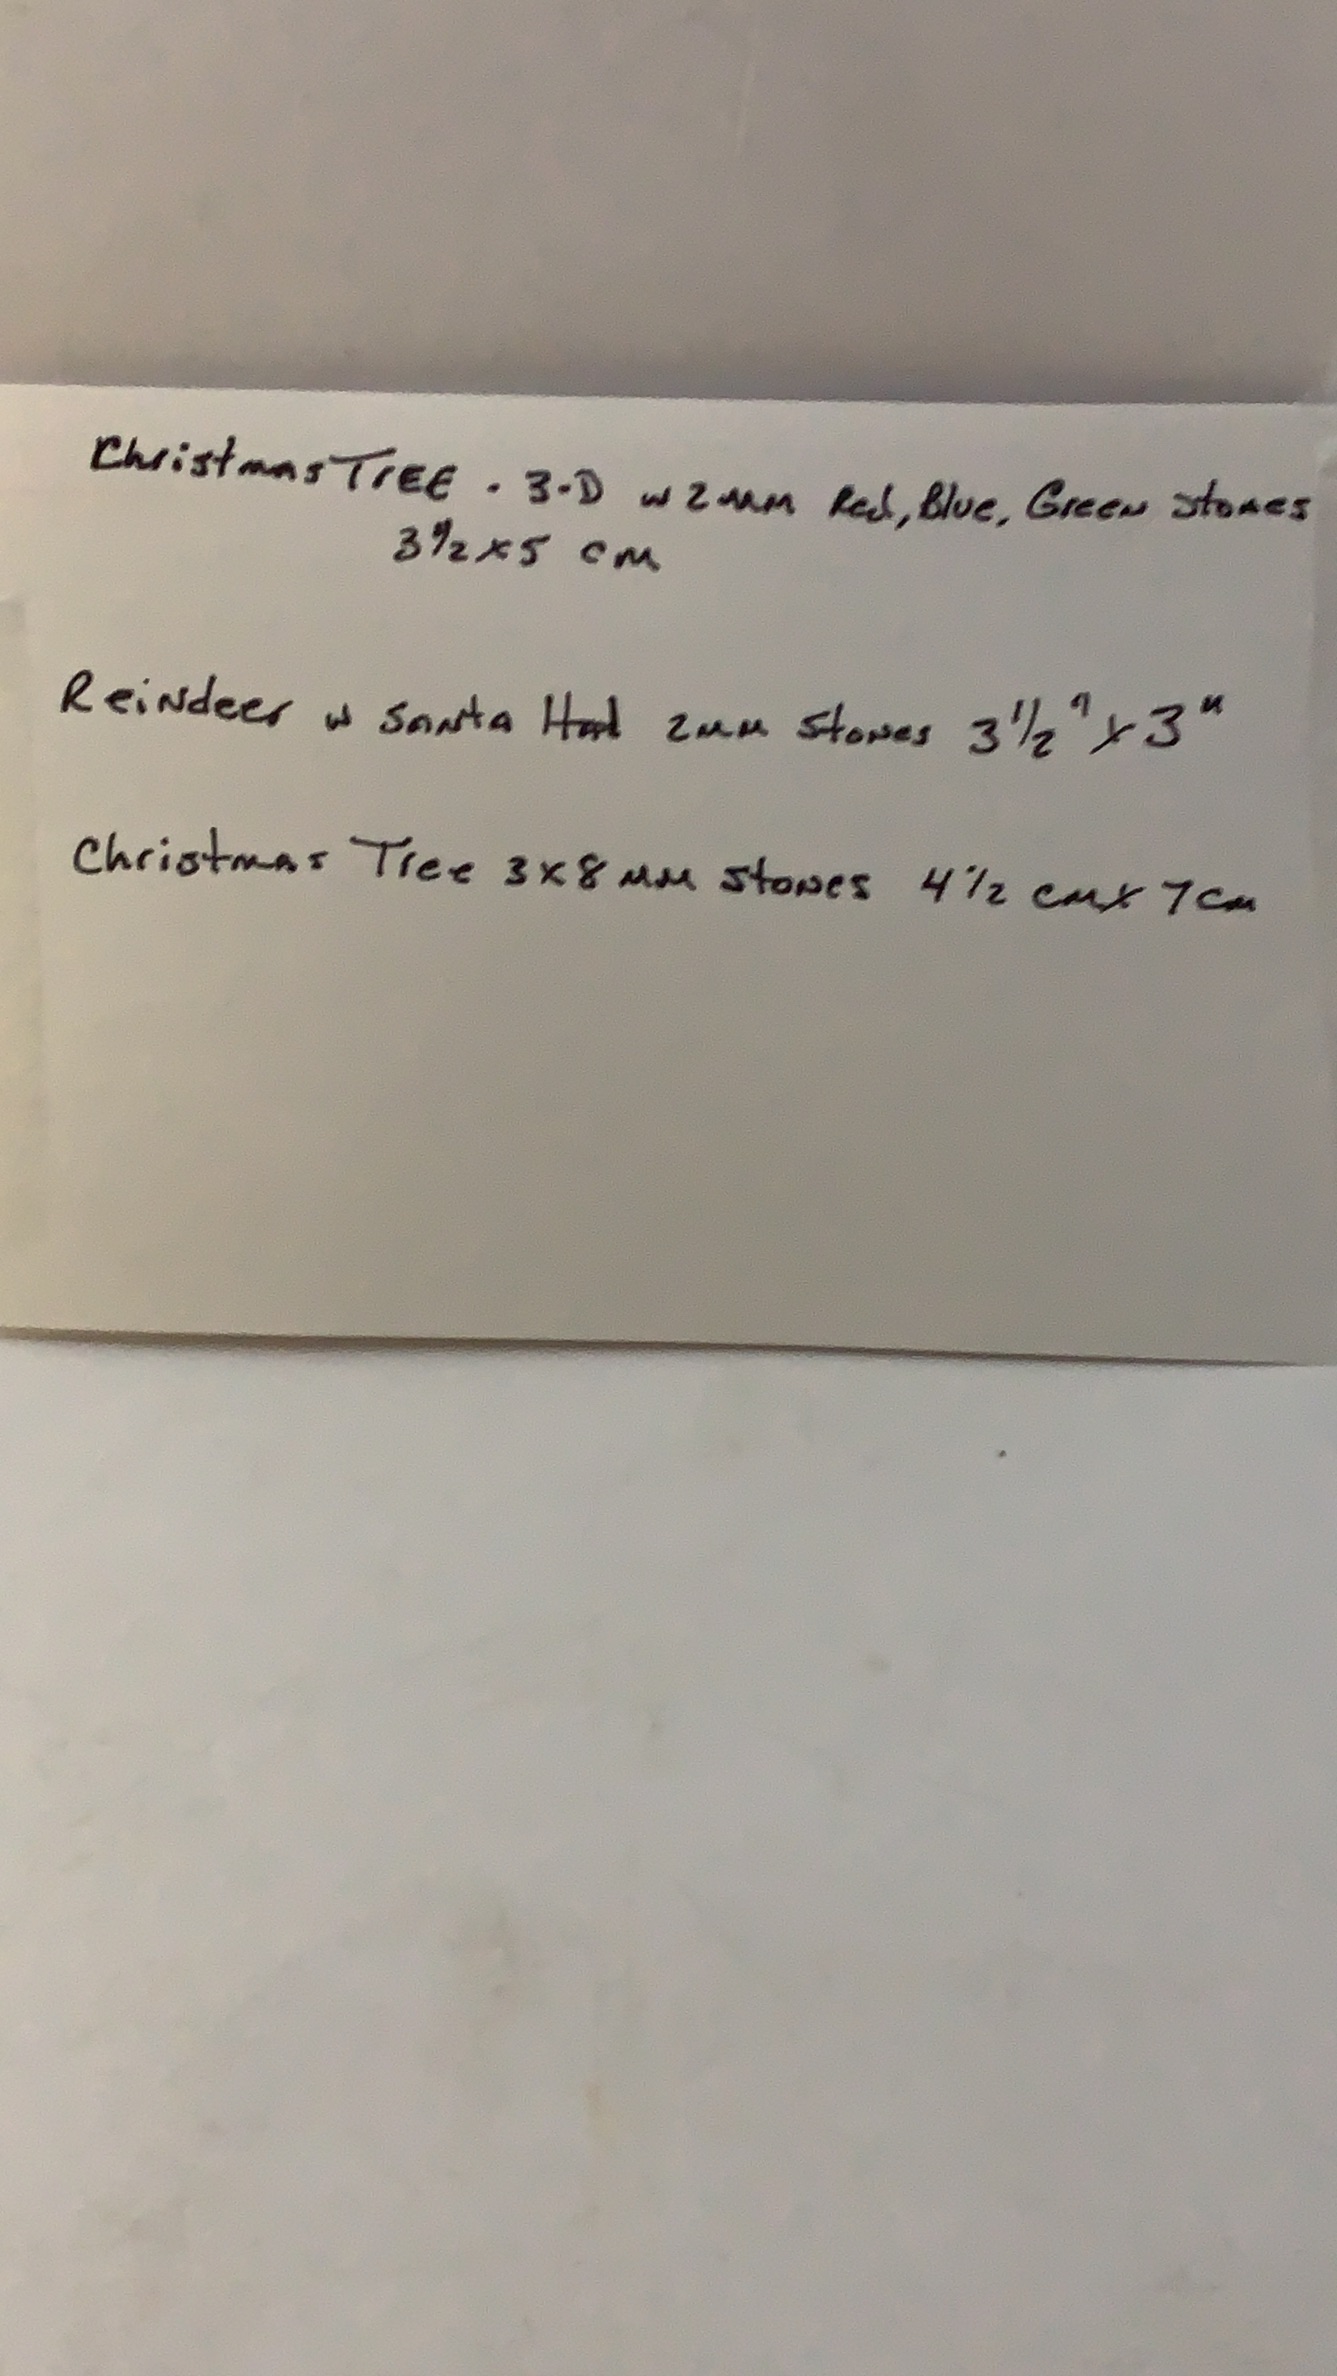 Christmas TrEE . 3-D w 2mm Red, Blue, Green stones
3 1/2 x 5 cm
Reindeer w Santa Hat 2mm Stones 3 1/2" x 3"
Christmas Tree 3x8 mm stones 4 1/2 cm x 7cm